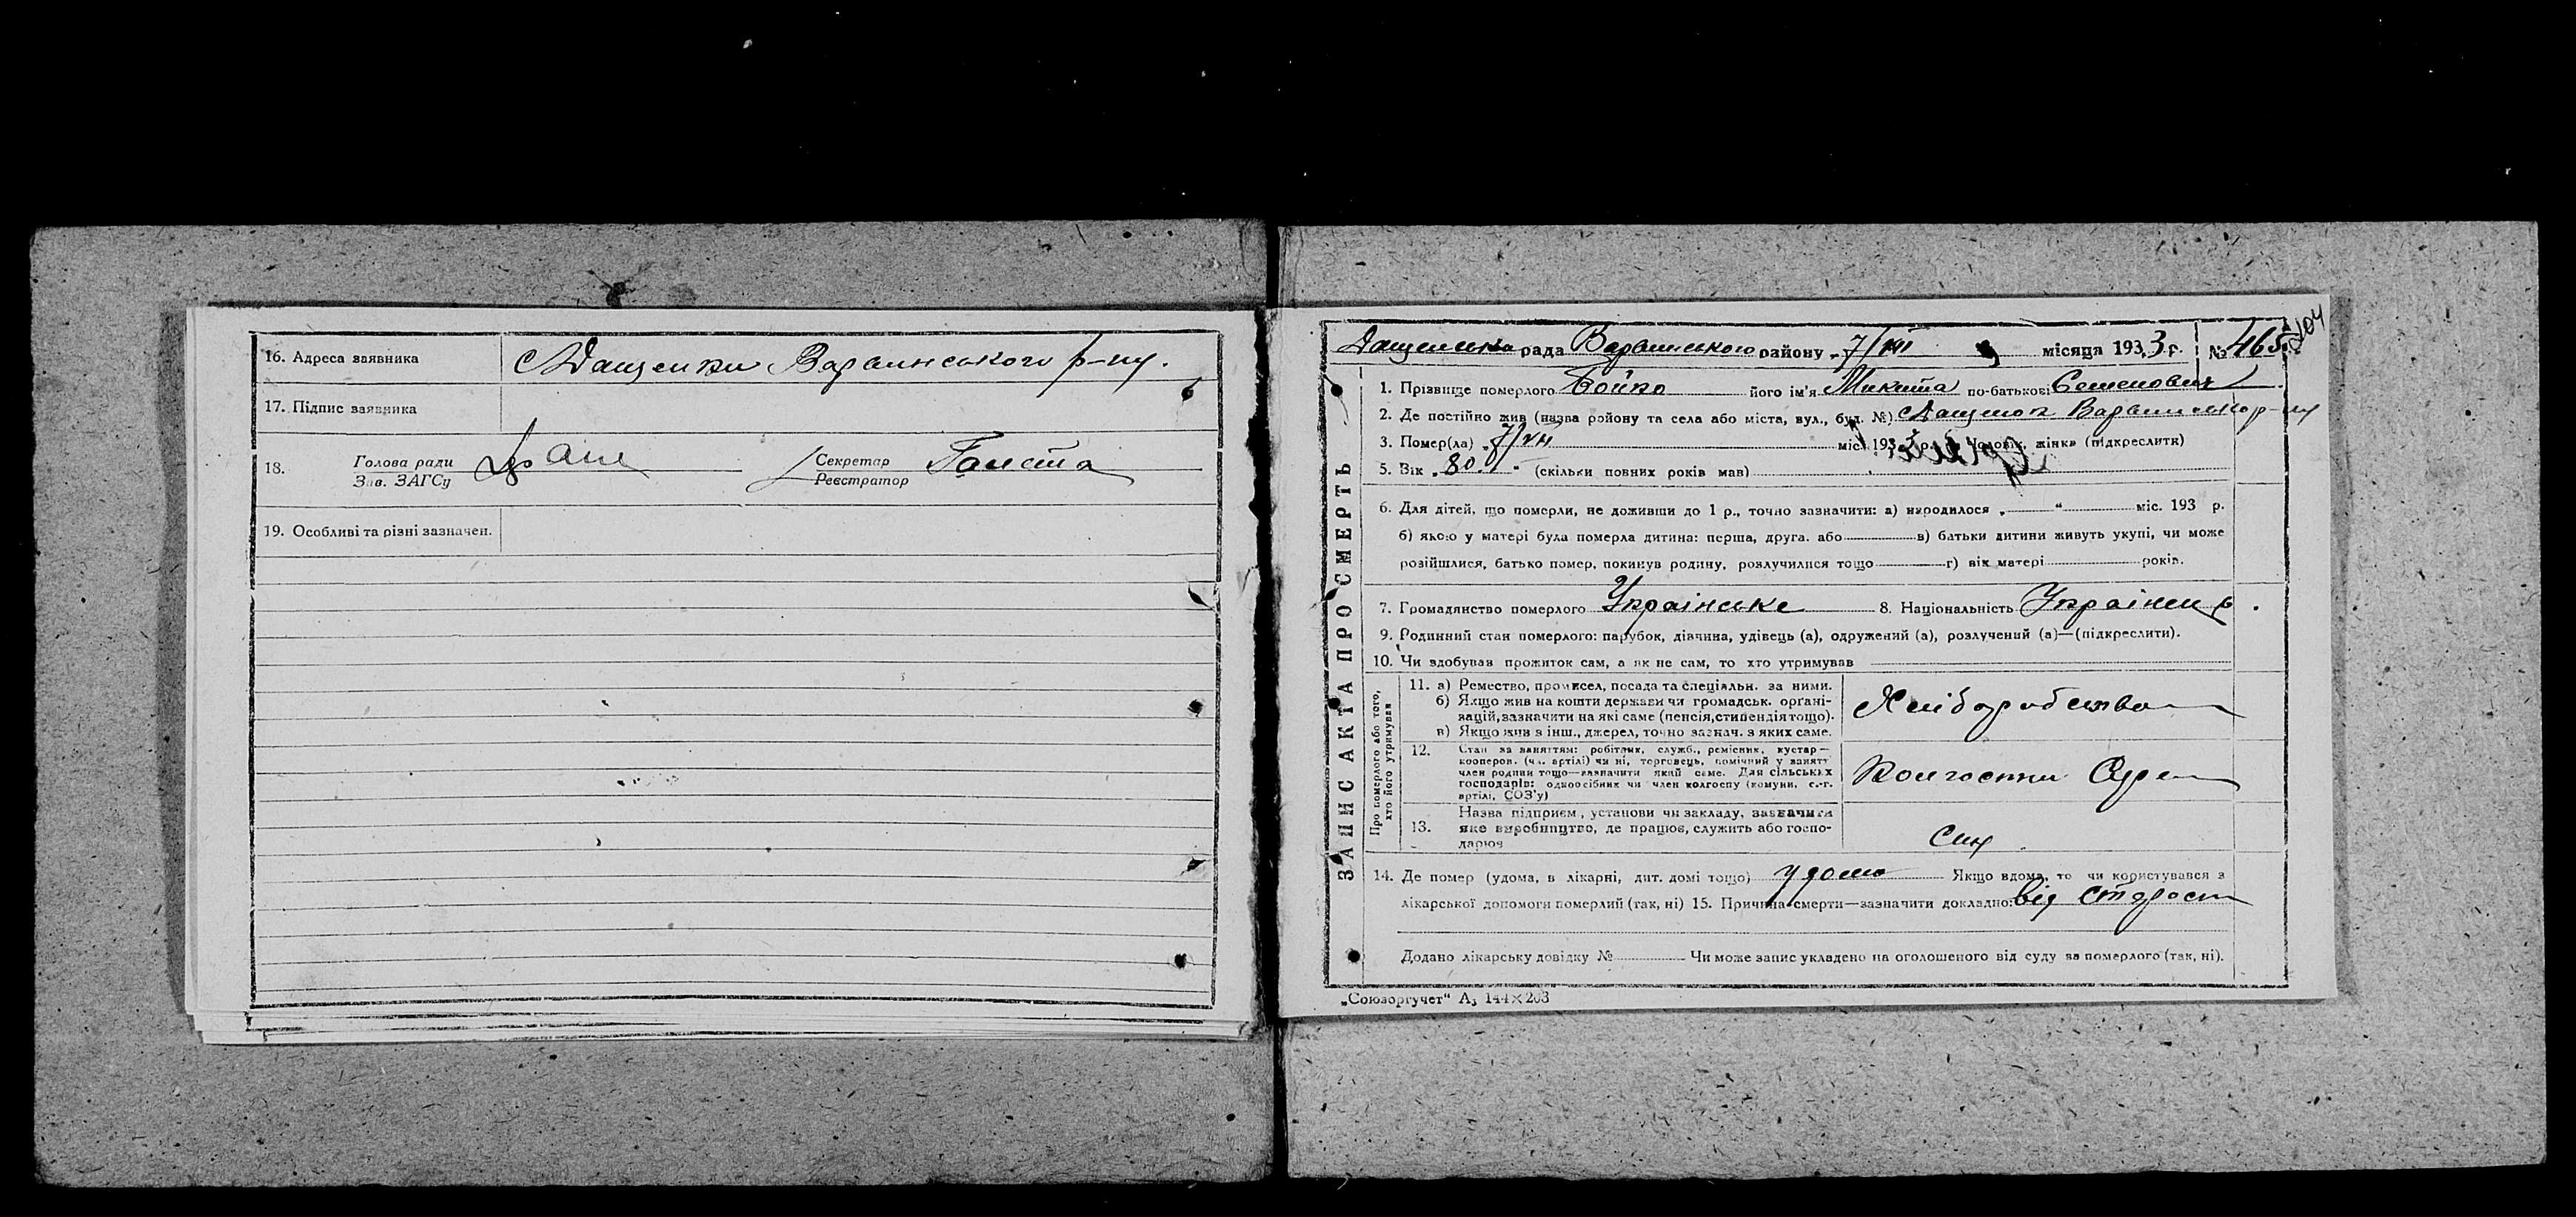 16. Адреса заявника с Дащенки Варвинського р-ну.
17. Підпис заявника
18. Голова ради
Зав. ЗАГСу
Секретар
Реєстратор
19. Особливі та різні зазначен.
104
Дащенська рада Варвинського району „7/VII місяця 1933 г. № 465
ЗАПИС АКТА ПРО СМЕРТЬ
1. Прізвище померлого Бойко його ім'я Микита по-батькові Семенович
2. Де постійно жив (назва району та села або міста, вул., буд. №) с Дащенк Варвинсько р-ну
3. Помер(ла) „7/VII міс. 193 р. чоловік, жінка (підкреслити)
5. Вік „80 “ (скільки повних років мав)
6. Для дітей, що померли, не доживши до 1 р., точно зазначити: а) народилося „ “ міс. 193 р.
б) якою у матері була померла дитина: перша, друга. або в) батьки дитини живуть укупі, чи може
розійшлися, батько помер, покинув родину, розлучилися тощо г) вік матері років.
7. Громадянство померлого Українське 8. Національність Українець
9. Родинний стан померлого: парубок, дівчина, удівець (а), одружений (а), розлучений (а)—(підкреслити).
10. Чи здобував прожиток сам, а як не сам, то хто утримував
Про померлого або того,
хто його утримував
11. а) Ремество, промисел, посада та спеціяльн. за ними.
б) Якщо жив на кошти держави чи громадськ. органі-
зацій, зазначити на які саме (пенсія, стипендія тощо).
в) Якщо жив з інш., джерел, точно зазнач. з яких саме.
Хліборобство
12. Стан за заняттям: робітник, служб., ремісник, кустар—
кооперов. (чл. артілі) чи ні, торговець, помічний у занятт
член родини тощо—зазначити який саме. Для сільських
господарів: одноосібник чи член колгоспу (комуни, с.-г.
артілі, СОЗ'у)
13. Назва підприєм, установи чи закладу, зазначити
яке виробництво, де працює, служить або госпо-
дарює
син
14. Де помер (удома, в лікарні, дит. домі тощо) удома Якщо вдома, то чи користувався з
лікарської допомоги померлий (так, ні) 15. Причина смерти—зазначити докладно: від старости
Додано лікарську довідку № Чи може запис укладено на оголошеного від суду за померлого (так, ні).
„Союзоргучет“ А₅ 144×203